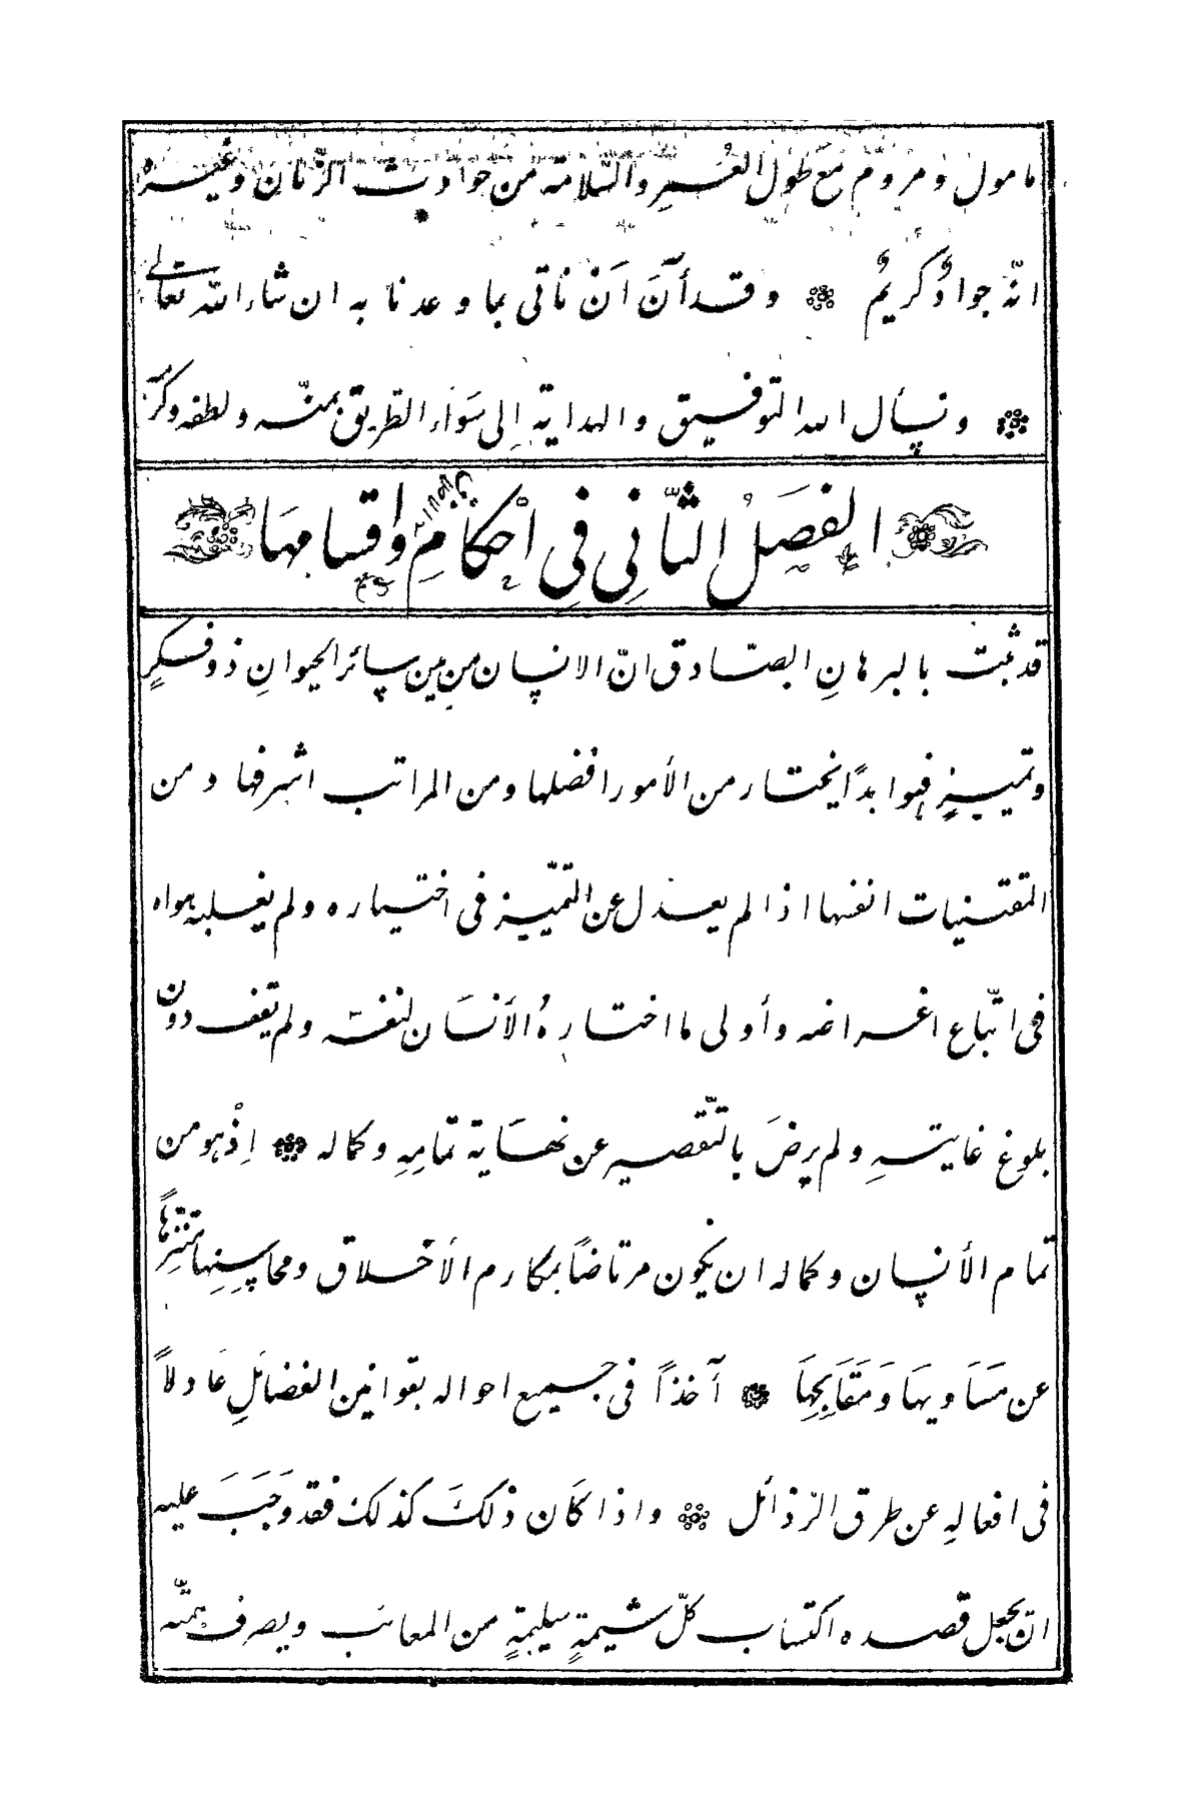 مامول ومروم مع طول العُمــرِ والسّلامة من حوادث الزّمان وغيــرهُ
انّهُ جوادٌ كريمٌ ۞ وقــد أنَ انْ ناتى بما وعدنا به ان شاء الله تعالى
۞ ونسأل الله التوفيق والهداية إلى سَواء الطّريق بمنّــه ولطفه وكرمه
الفصَلُ الثّاني فى احْكامِ الاخلاق واقسامهَا
قد ثبت بالبرهانِ الصّادق انّ الانسان من بين سائر الحيوانِ ذو فكرٍ
وتمييزٍ فهو ابدًا يختار من الأمور افضلها ومن المراتب اشرفها ومن
المقتنيات انفسها اذا لم يعدل عن التمّييز فى اختياره ولم يغلبه هواه
فى اتّباع اغراضه وأولى ما اختارهُ الأنسَان لنفسه ولم يقف دون
بلوغ غايتــهِ ولم يرضَ بالتّقصير عن نهايَة تمامِهِ وكماله ۞ اِذْ هو من
تمام الأنسان وكماله ان يكون مرتاضًا بمكارم الأخلاق ومحاسِنِها متنزِّهًا
عن مَسَاويهَا وَمَقَابِحِهَا ۞ آخذاً فى جميع احواله بقوانين الفضائلِ عَادلاً
فى افعالهِ عن طرق الرّذائل ۞ واذا كَان ذلكَ كذلك فقد وَجَبَ عليه
ان يجعل قصده اكتساب كلّ شيمةٍ سليمةٍ من المعائب ويصرف همّته